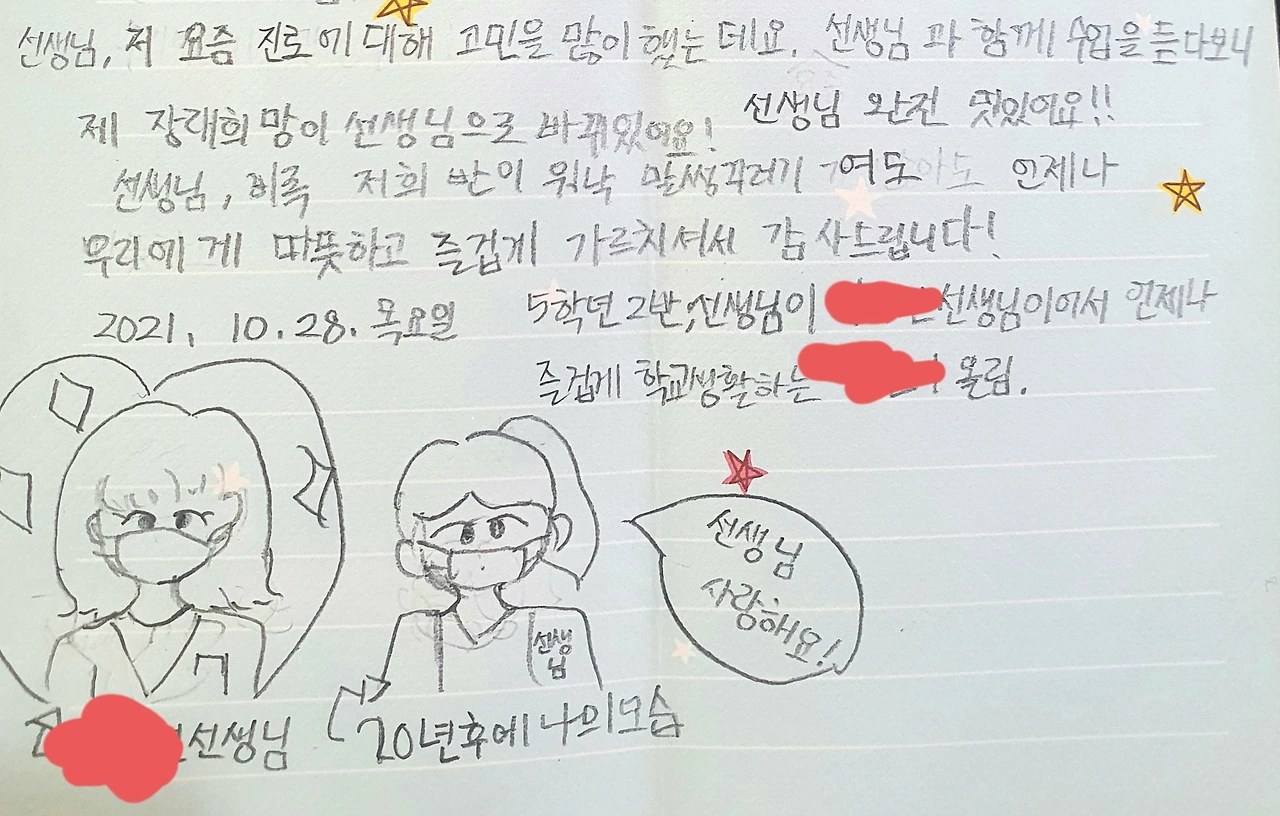 선생님, 저 요즘 진로에 대해 고민을 많이 했는 데요, 선생님 과 함께 수업을 듣다보니
제 장래희망이 선생님으로 바뀌있어요! 선생님 완전 멋있어요!!
선생님, 비록 저희 반이 워낙 말썽꾸러기 여도 언제나
우리에게 따뜻하고 즐겁게 가르치셔서 감사드립니다!
2021. 10. 28. 목요일
5학년 2반, 선생님이 선생님이어서 언제나
즐겁게 학교생활하는 올림.
선생님
사랑해요!
선생
님
선생님
20년후에 나의모습